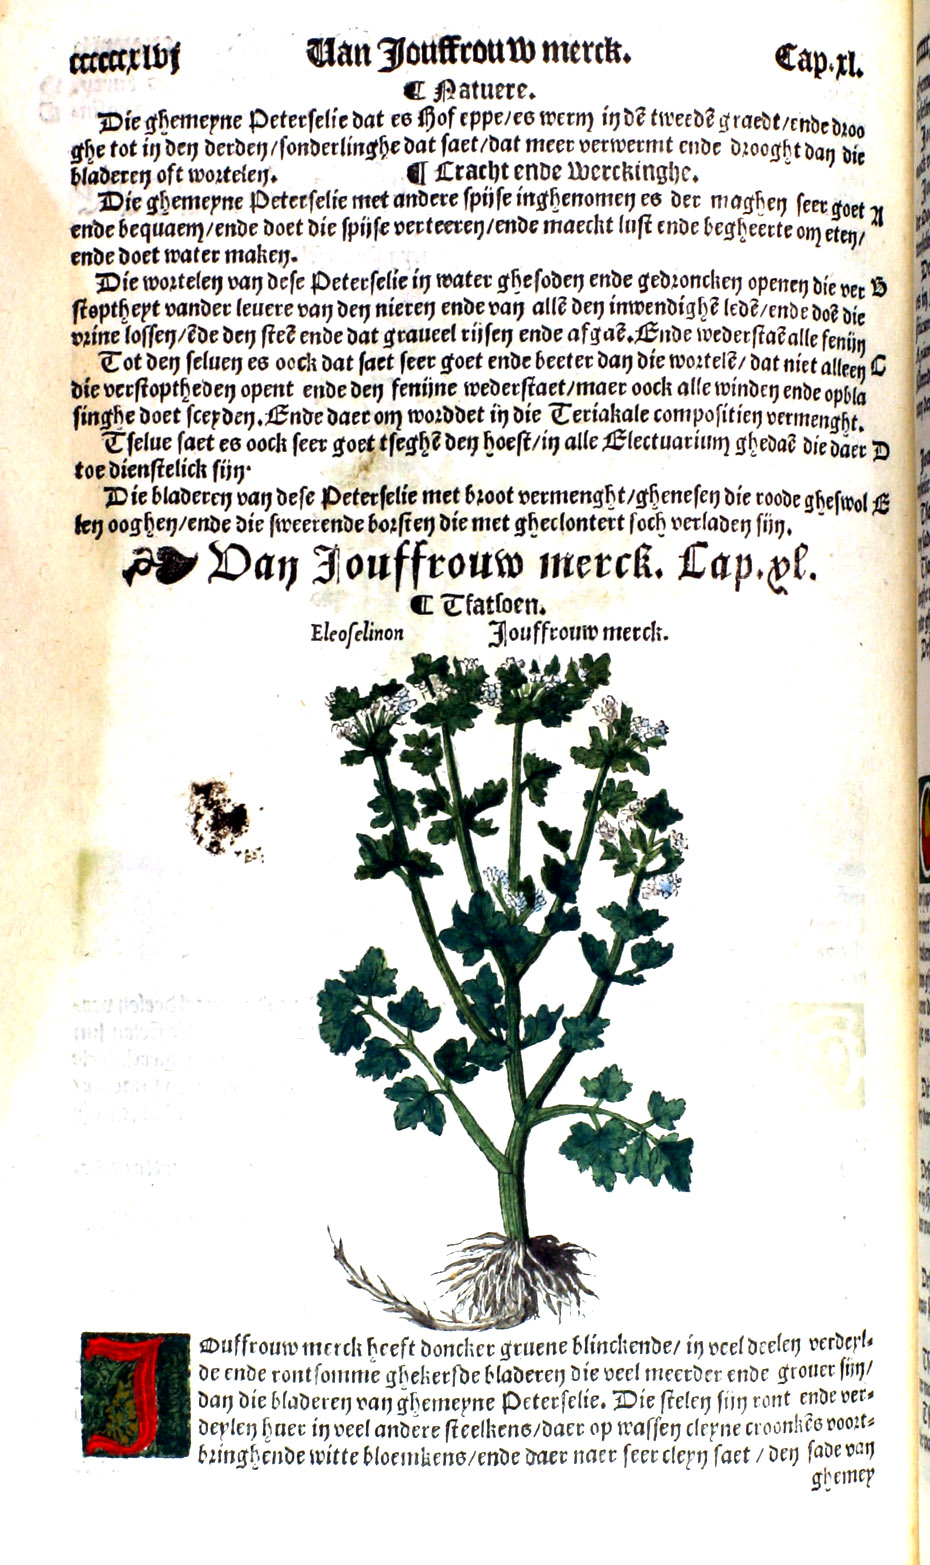 ccccccxlvj Van Jouffrouw merck. Cap.xl.
¶ Natuere.
Die ghemeyne Peterselie dat es Hof eppe/es werm in dē tweedē graedt/ende droo
ghe tot in den derden/sonderlinghe dat saet/dat meer verwermt ende drooght dan die
bladeren oft wortelen. ¶ Cracht ende Werckinghe.
Die ghemeyne Peterselie met andere spijse inghenomen es der maghen seer goet A
ende bequaem/ende doet die spijse verteeren/ende maeckt lust ende begheerte om eten/
ende doet water maken.
Die wortelen van dese Peterselie in water ghesoden ende gedroncken openen die ver B
stoptheyt vander levere van den nieren ende van allē den inwendighē ledē/ende doē die
vrine lossen/ēde den steē ende dat graveel rijsen ende afgaē. Ende wederstaē alle fenijn
Tot den selven es oock dat saet seer goet ende beeter dan die wortelē/ dat niet alleen C
die verstoptheden opent ende den fenijne wederstaet/maer oock alle winden ende opbla
singhe doet sceyden. Ende daer om worddet in die Teriakale compositien vermenght.
Tselve saet es oock seer goet tseghē den hoest/in alle Electuarium ghedaē die daer D
toe dienstelick sijn.
Die bladeren van dese Peterselie met broot vermenght/ghenesen die roode gheswol E
len ooghen/ende die sweerende borsten die met gheclontert soch verladen sijn.
Van Jouffrouw merck. Cap.xl.
¶ Tfatsoen.
Eleoselinon Jouffrouw merck.
JOuffrouw merck heeft doncker gruene blinckende/ in veel deelen verdeyl-
de ende rontsomme ghekersde bladeren die veel meerder ende grover sijn/
dan die bladeren van ghemeyne Peterselie. Die stelen sijn ront ende ver-
deylen huer in veel andere steelkens/daer op wassen cleyne croonkēs voort-
bringhende witte bloemkens/ende daer naer seer cleyn saet / den sade van
ghemey